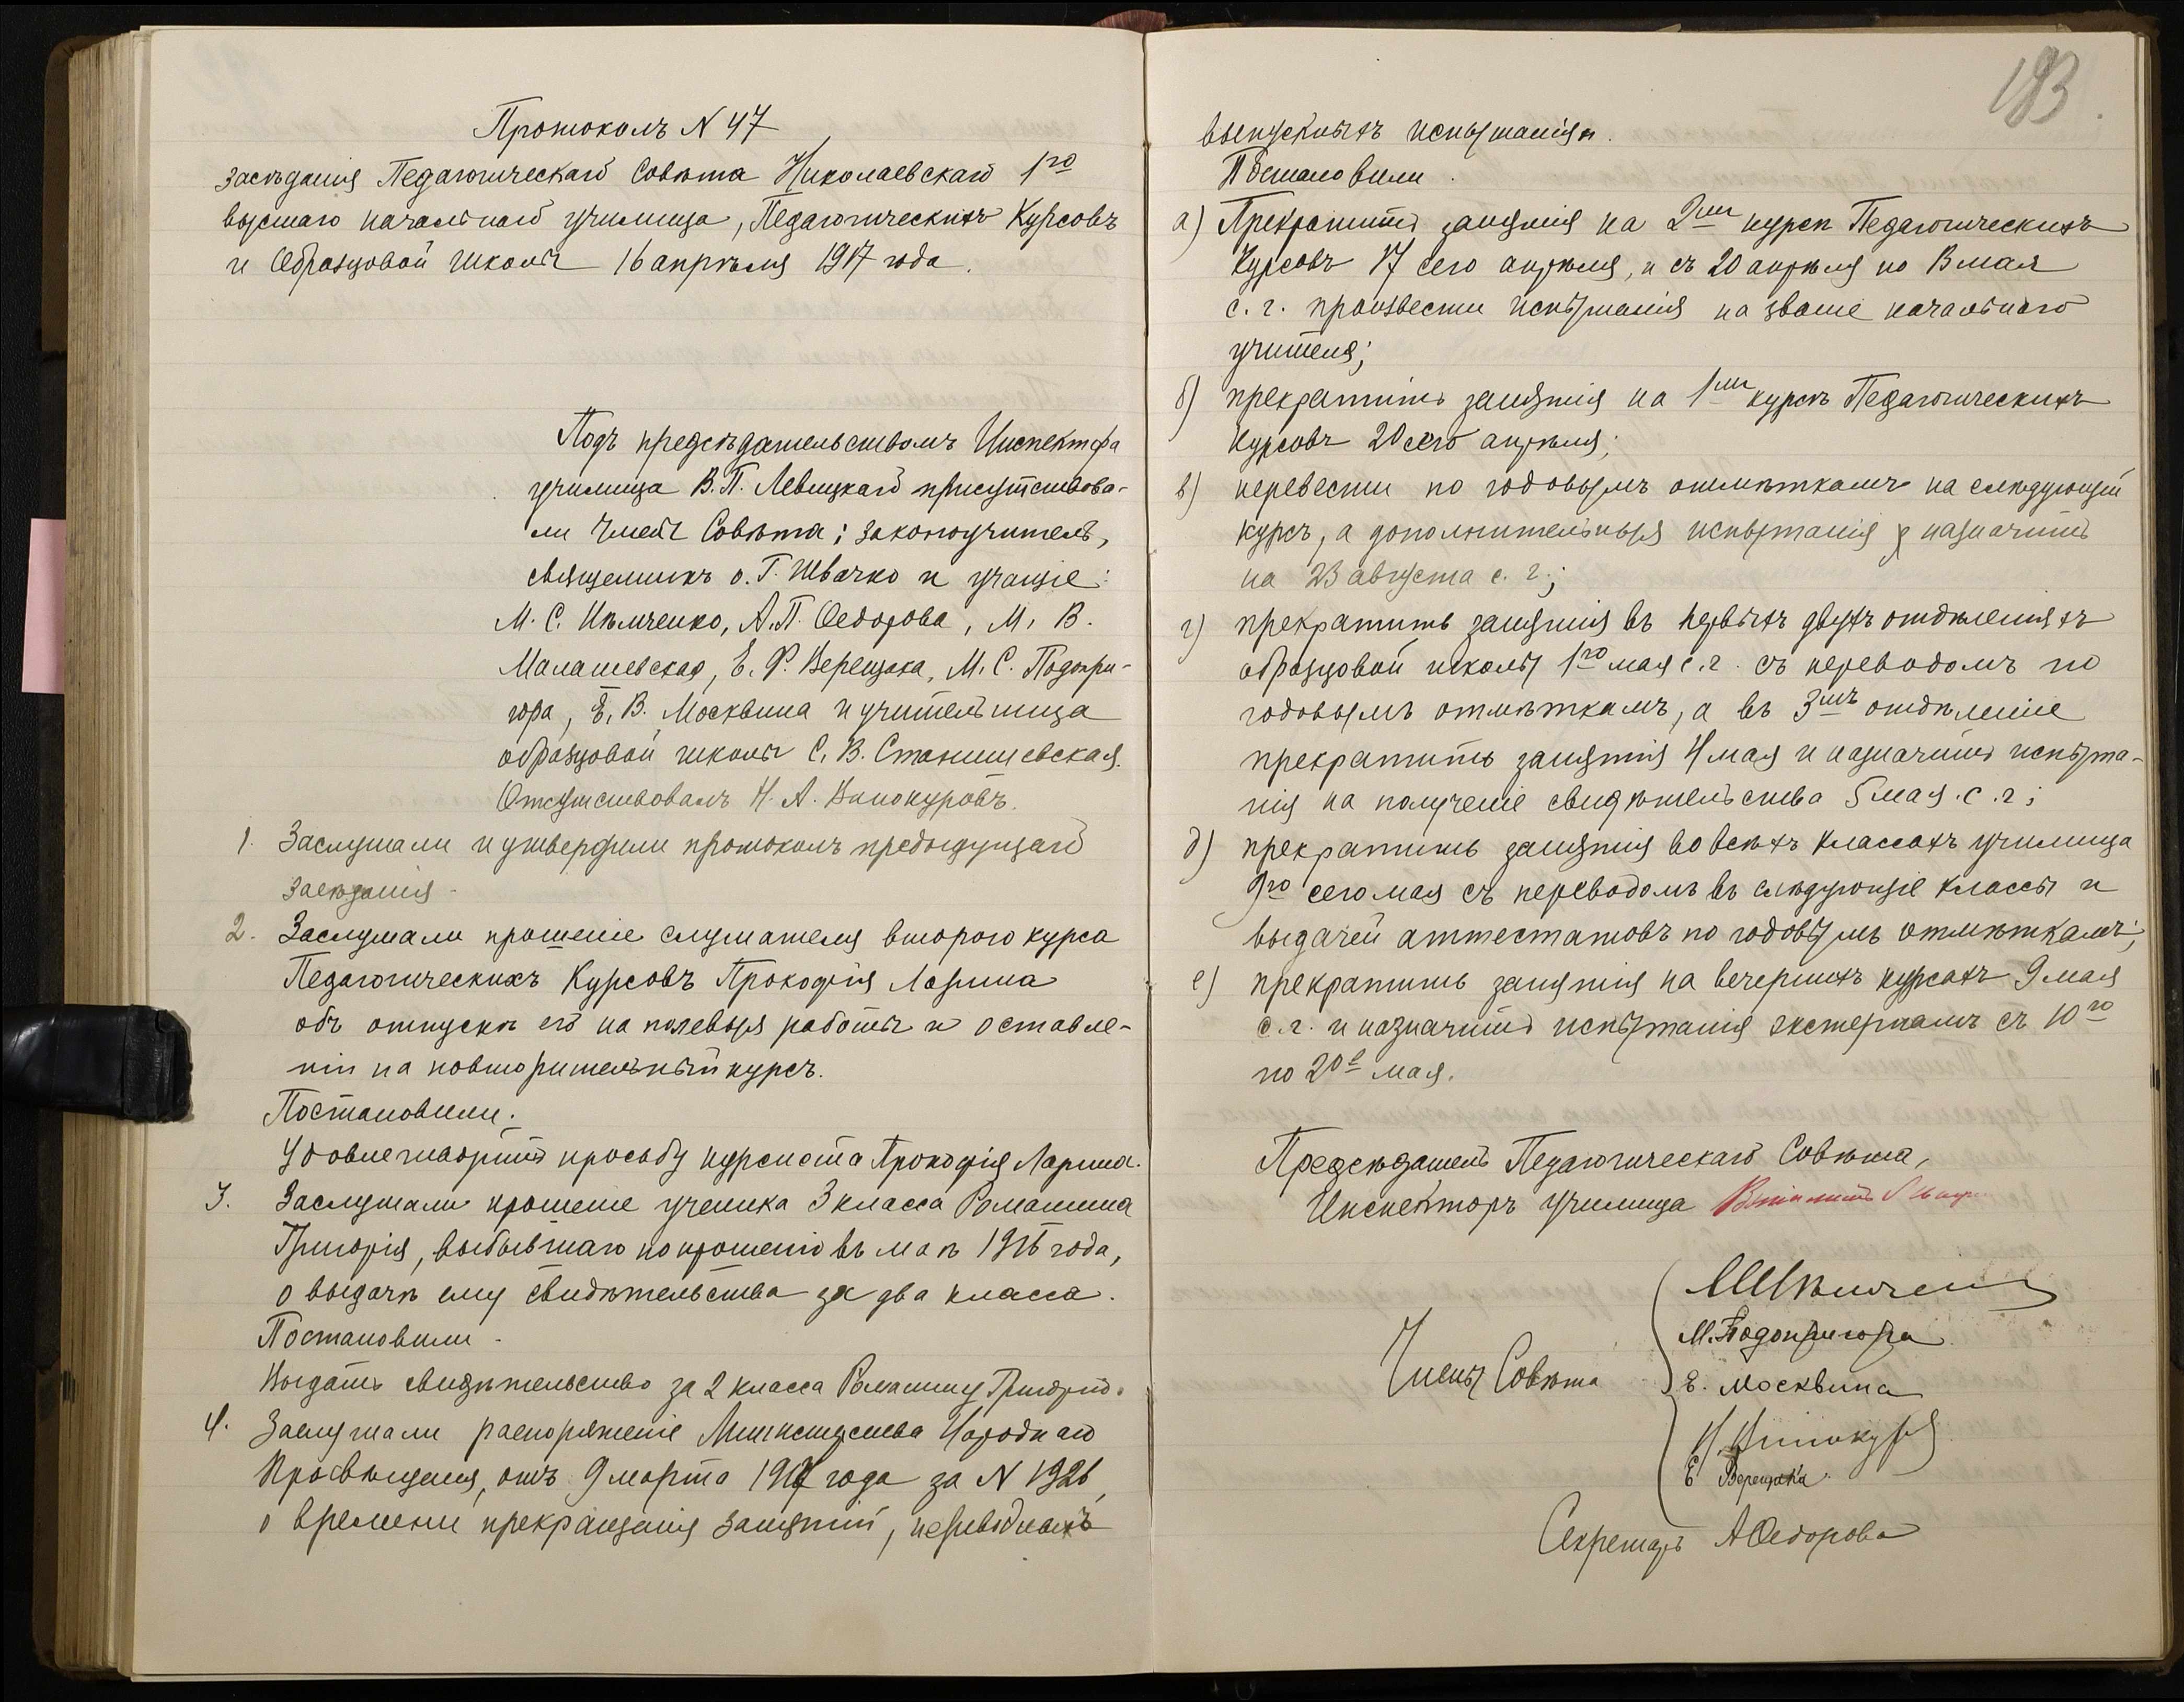 Протоколъ N 47
засѣданія Педагогическаго Совѣта Николаевскаго 1го
высшаго начальнаго училища, Педагогическихъ Курсовъ
и Образцовой школы 16 апрѣля 1917 года.
Подъ предсѣдательствомъ Инспектора
училища В. П. Левицкаго присутствова-
ли члены Совѣта: законоучитель,
священникъ о. Г. Швачко и учащіе:
М. С. Ильченко, А. П. Ѳедорова, М. В.
Малашевская, Е. Ф. Верещака, М. С. Подопри-
гора, Е. В. Москвина и учительница
образцовой школы С. В. Станишевская.
Отсутствовалъ Н. А. Винокуровъ.
1. Заслушали и утвердили протоколъ предыдущаго
засѣданія.
2. Заслушали прошеніе слушателя второго курса
Педагогическихъ Курсовъ Прокофія Ларина
объ отпускѣ его на полевыя работы и оставле-
ніи на повторительный курсъ.
Постановили.
Удовлетворить просьбу курсиста Прокофія Ларина.
3. Заслушали прошеніе ученика 3 класса Ромашина
Григорія, выбывшаго по прошенію въ маѣ 1916 года,
о выдачѣ ему свидѣтельства за два класса.
Постановили.
Выдать свидѣтельство за 2 класса Ромашину Григорію.
4. Заслушали распоряженіе Министерства Народнаго
Просвѣщенія, отъ 9 марта 1917 года за N 1926,
о времени прекращенія занятій, переводныхъ
193
выпускныхъ испытаніях.
Постановили.
а) Прекратить занятія на 2мъ курсѣ Педагогическихъ
Курсовъ 17 сего апрѣля, и съ 20 апрѣля по 3 мая
с. г. произвести испытанія на званіе начальнаго
учителя;
б) прекратить занятія на 1мъ курсѣ Педагогическихъ
Курсовъ 20 сего апрѣля;
в) перевести по годовымъ отмѣткамъ на слѣдующій
курсъ, а дополнительныя испытанія назначить
на 23 августа с. г.;
г) прекратить занятія въ первыхъ двухъ отдѣленіяхъ
образцовой школы 1го мая с. г. съ переводомъ по
годовымъ отмѣткамъ, а въ 3мъ отдѣленіе
прекратить занятія 4 мая и назначить испыта-
нія на полученіе свидѣтельства 5 мая. с. г;
д) прекратить занятія во всѣхъ классахъ училища
9го сего мая съ переводомъ въ слѣдующіе классы и
выдачей аттестатовъ по годовымъ отмѣткамъ;
е) прекратить занятія на вечернихъ курсахъ 9 мая
с. г. и назначить испытанія экстернамъ съ 10го
по 20е мая.
Предсѣдатель Педагогическаго Совѣта,
Инспекторъ училища
Члены Совѣта
М. Подопригора
Е. Москвина
Е Верещака.
Секретарь АѲедорова